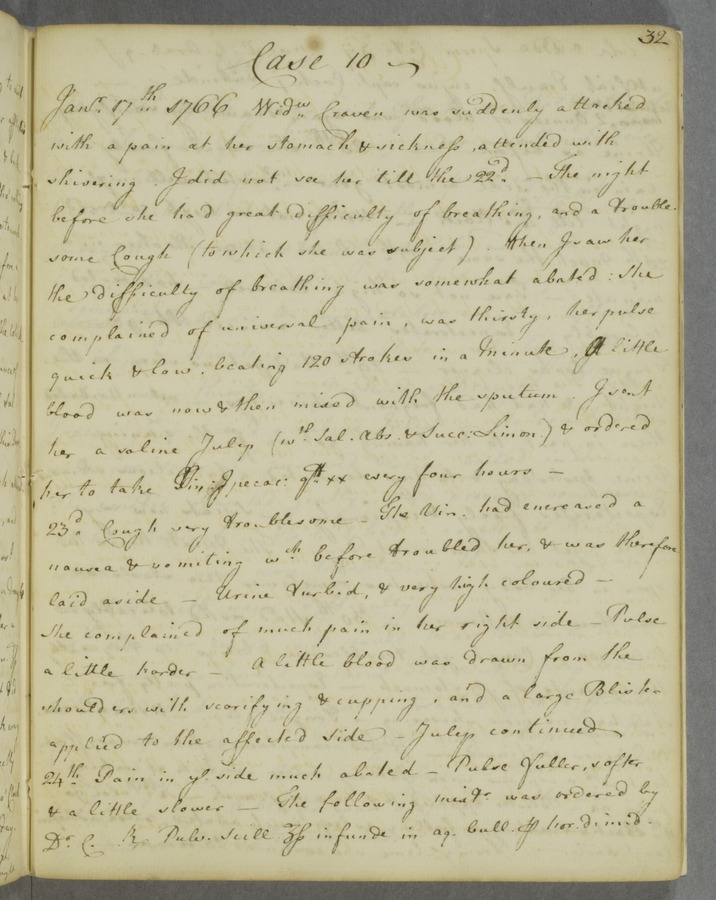 32
Case 10
Janr. 17th 1766 Widw. Craven was suddenly attacked
with a pain at her stomach & sickness, attended with
shivering. I did not see her till the 22d. — The night
before she had great difficulty of breathing, and a trouble-
some Cough (to which she was subject). When I saw her
the difficulty of breathing was somewhat abated: she
complained of universal pain, was thirsty, her pulse
quick & low, beating 120 strokes in a Minute. A little
blood was now & then mixed with the sputum. I sent
her a saline Julep (wth. Sal. Abs. & Succ: Limon.) & ordered
her to take Vin: Ipecac: gtt xx every four hours —
23d. Cough very troublesome — The Vin. had encreased a
nausea & vomiting wch. before troubled her, & was therefore
laid aside — Urine turbid, & very high coloured —
She complained of much pain in her right side — Pulse
a little harder — A little blood was drawn from the
shoulders with scarifying & cupping, and a large Blister
applied to the affected side — Julep continued
24th Pain in ye side much abated — Pulse fuller, softer
& a little slower — The following mixtr. was ordered by
Dr. C. ℞ Pulv. Scill ʒß infunde in aq. bull. p hor. dimid.